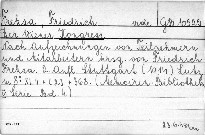 Freksa, Friedrich
Der Wiener Kongress
Nach Aufzeichnungen von Teilnehmern
und Mitarbeitern hrsg. von Friedrich
Freksa. 2. Aufl. Stuttgart (1914) Lutz
(Memoiren Bibliothek
V. Serie Bd. 4)